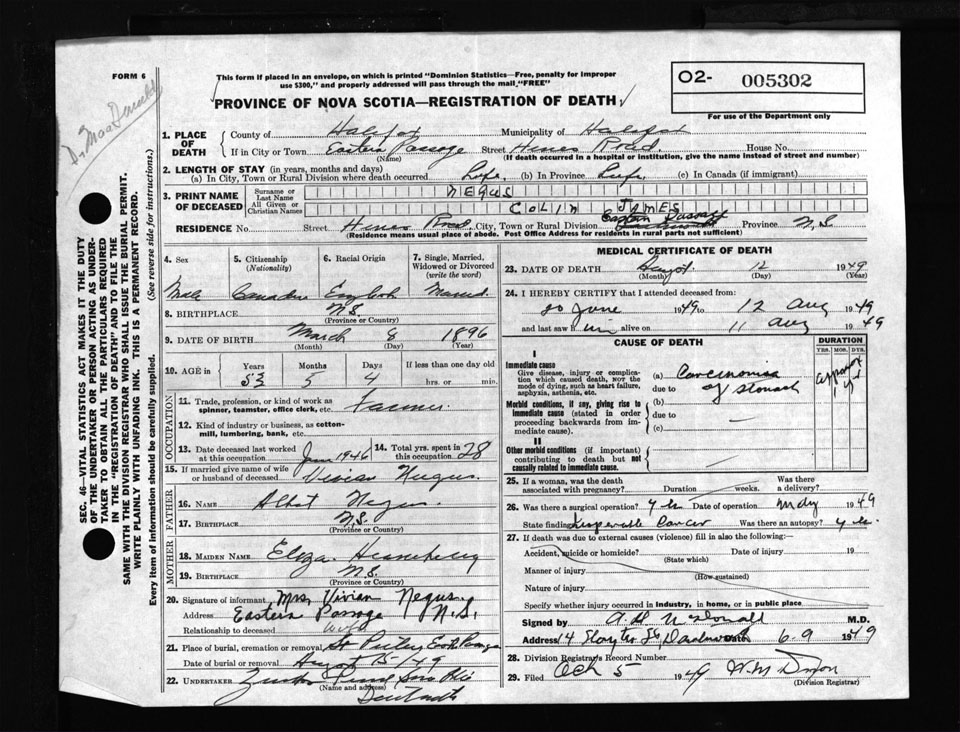 FORM 6
This form if placed in an envelope, on which is printed "Dominion Statistics—Free, penalty for improper
use $300," and properly addressed will pass through the mail "FREE"
PROVINCE OF NOVA SCOTIA—REGISTRATION OF DEATH
O2- 005302
For use of the Department only
Dr MacDonald
SEC. 46—VITAL STATISTICS ACT MAKES IT THE DUTY
OF THE UNDERTAKER OR PERSON ACTING AS UNDER-
TAKER TO OBTAIN ALL THE PARTICULARS REQUIRED
IN THE "REGISTRATION OF DEATH" AND TO FILE THE
SAME WITH THE DIVISION REGISTRAR WHO SHALL ISSUE THE BURIAL PERMIT.
WRITE PLAINLY WITH UNFADING INK. THIS IS A PERMANENT RECORD.
Every item of information should be carefully supplied. (See reverse side for instructions.)
1. PLACE OF DEATH
County of Halifax Municipality of Halifax
If in City or Town Eastern Passage Street Hines Road House No.
(Name) (If death occurred in a hospital or institution, give the name instead of street and number)
2. LENGTH OF STAY (in years, months and days)
(a) In City, Town or Rural Division where death occurred Life (b) In Province Life (c) In Canada (if immigrant)
3. PRINT NAME OF DECEASED
Surname or Last Name NEGUS
All Given or Christian Names COLIN JAMES
RESIDENCE No. Street Hines Road City, Town or Rural Division Eastern Passage Province N.S.
(Residence means usual place of abode. Post Office Address for residents in rural parts not sufficient)
4. Sex Male
5. Citizenship (Nationality) Canadian
6. Racial Origin English
7. Single, Married, Widowed or Divorced (write the word) Married
8. BIRTHPLACE N.S.
(Province or Country)
9. DATE OF BIRTH March 8 1896
(Month) (Day) (Year)
10. AGE in Years 53 Months 5 Days 4 If less than one day old hrs. or min.
OCCUPATION
11. Trade, profession, or kind of work as
spinner, teamster, office clerk, etc. Farmer
12. Kind of industry or business, as cotton-
mill, lumbering, bank, etc.
13. Date deceased last worked
at this occupation June 1946
14. Total yrs. spent in
this occupation 28
15. If married give name of wife
or husband of deceased Vivian Negus
FATHER
16. NAME Albert Negus
17. BIRTHPLACE N.S.
(Province or Country)
MOTHER
18. MAIDEN NAME Eliza
19. BIRTHPLACE N.S.
(Province or Country)
20. Signature of informant Mrs. Vivian Negus
Address Eastern Passage N.S.
Relationship to deceased Wife
21. Place of burial, cremation or removal St Peters East Passage
Date of burial or removal August 15/49
22. UNDERTAKER
(Name and address) Dartmouth
MEDICAL CERTIFICATE OF DEATH
23. DATE OF DEATH August 12 1949
(Month) (Day) (Year)
24. I HEREBY CERTIFY that I attended deceased from:
20 June 1949 to 12 Aug 1949
and last saw h im alive on 11 Aug 1949
CAUSE OF DEATH
DURATION
YRS. MOS. DYS.
I
Immediate cause
Give disease, injury or complica-
tion which caused death, NOT the
mode of dying, such as heart failure,
asphyxia, asthenia, etc.
(a) Carcinoma
due to of stomach
Morbid conditions, if any, giving rise to
immediate cause (stated in order
proceeding backwards from im-
mediate cause).
(b)
due to
(c)
II
Other morbid conditions (if important)
contributing to death but not
causally related to immediate cause.
25. If a woman, was the death
associated with pregnancy? Duration weeks. Was there
a delivery?
26. Was there a surgical operation? yes Date of operation 1949
State finding Inoperable Cancer Was there an autopsy?
27. If death was due to external causes (violence) fill in also the following:
Accident, suicide or homicide? Date of injury 19
(State which)
Manner of injury
(How sustained)
Nature of injury
Specify whether injury occurred in industry, in home, or in public place
Signed by M.D.
Address 14 St, Dartmouth 6-9 1949
28. Division Registrar's Record Number
29. Filed Oct 5 1949 W.M.
(Division Registrar)